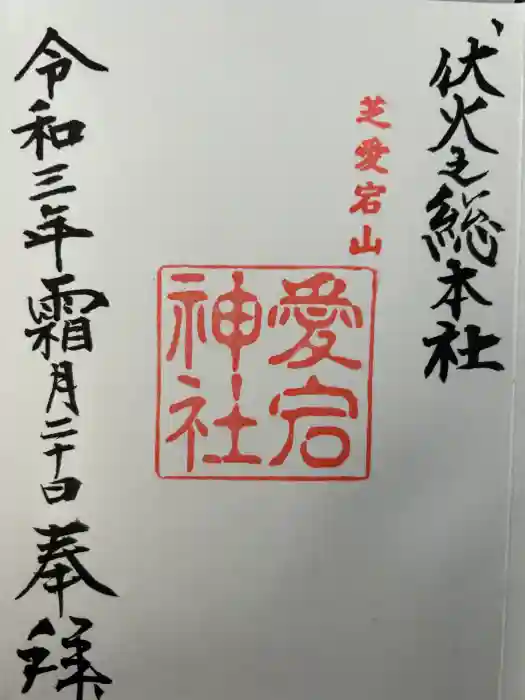 伏火之総本社
芝愛宕山
愛宕
神社
令和三年霜月二十日 奉拝